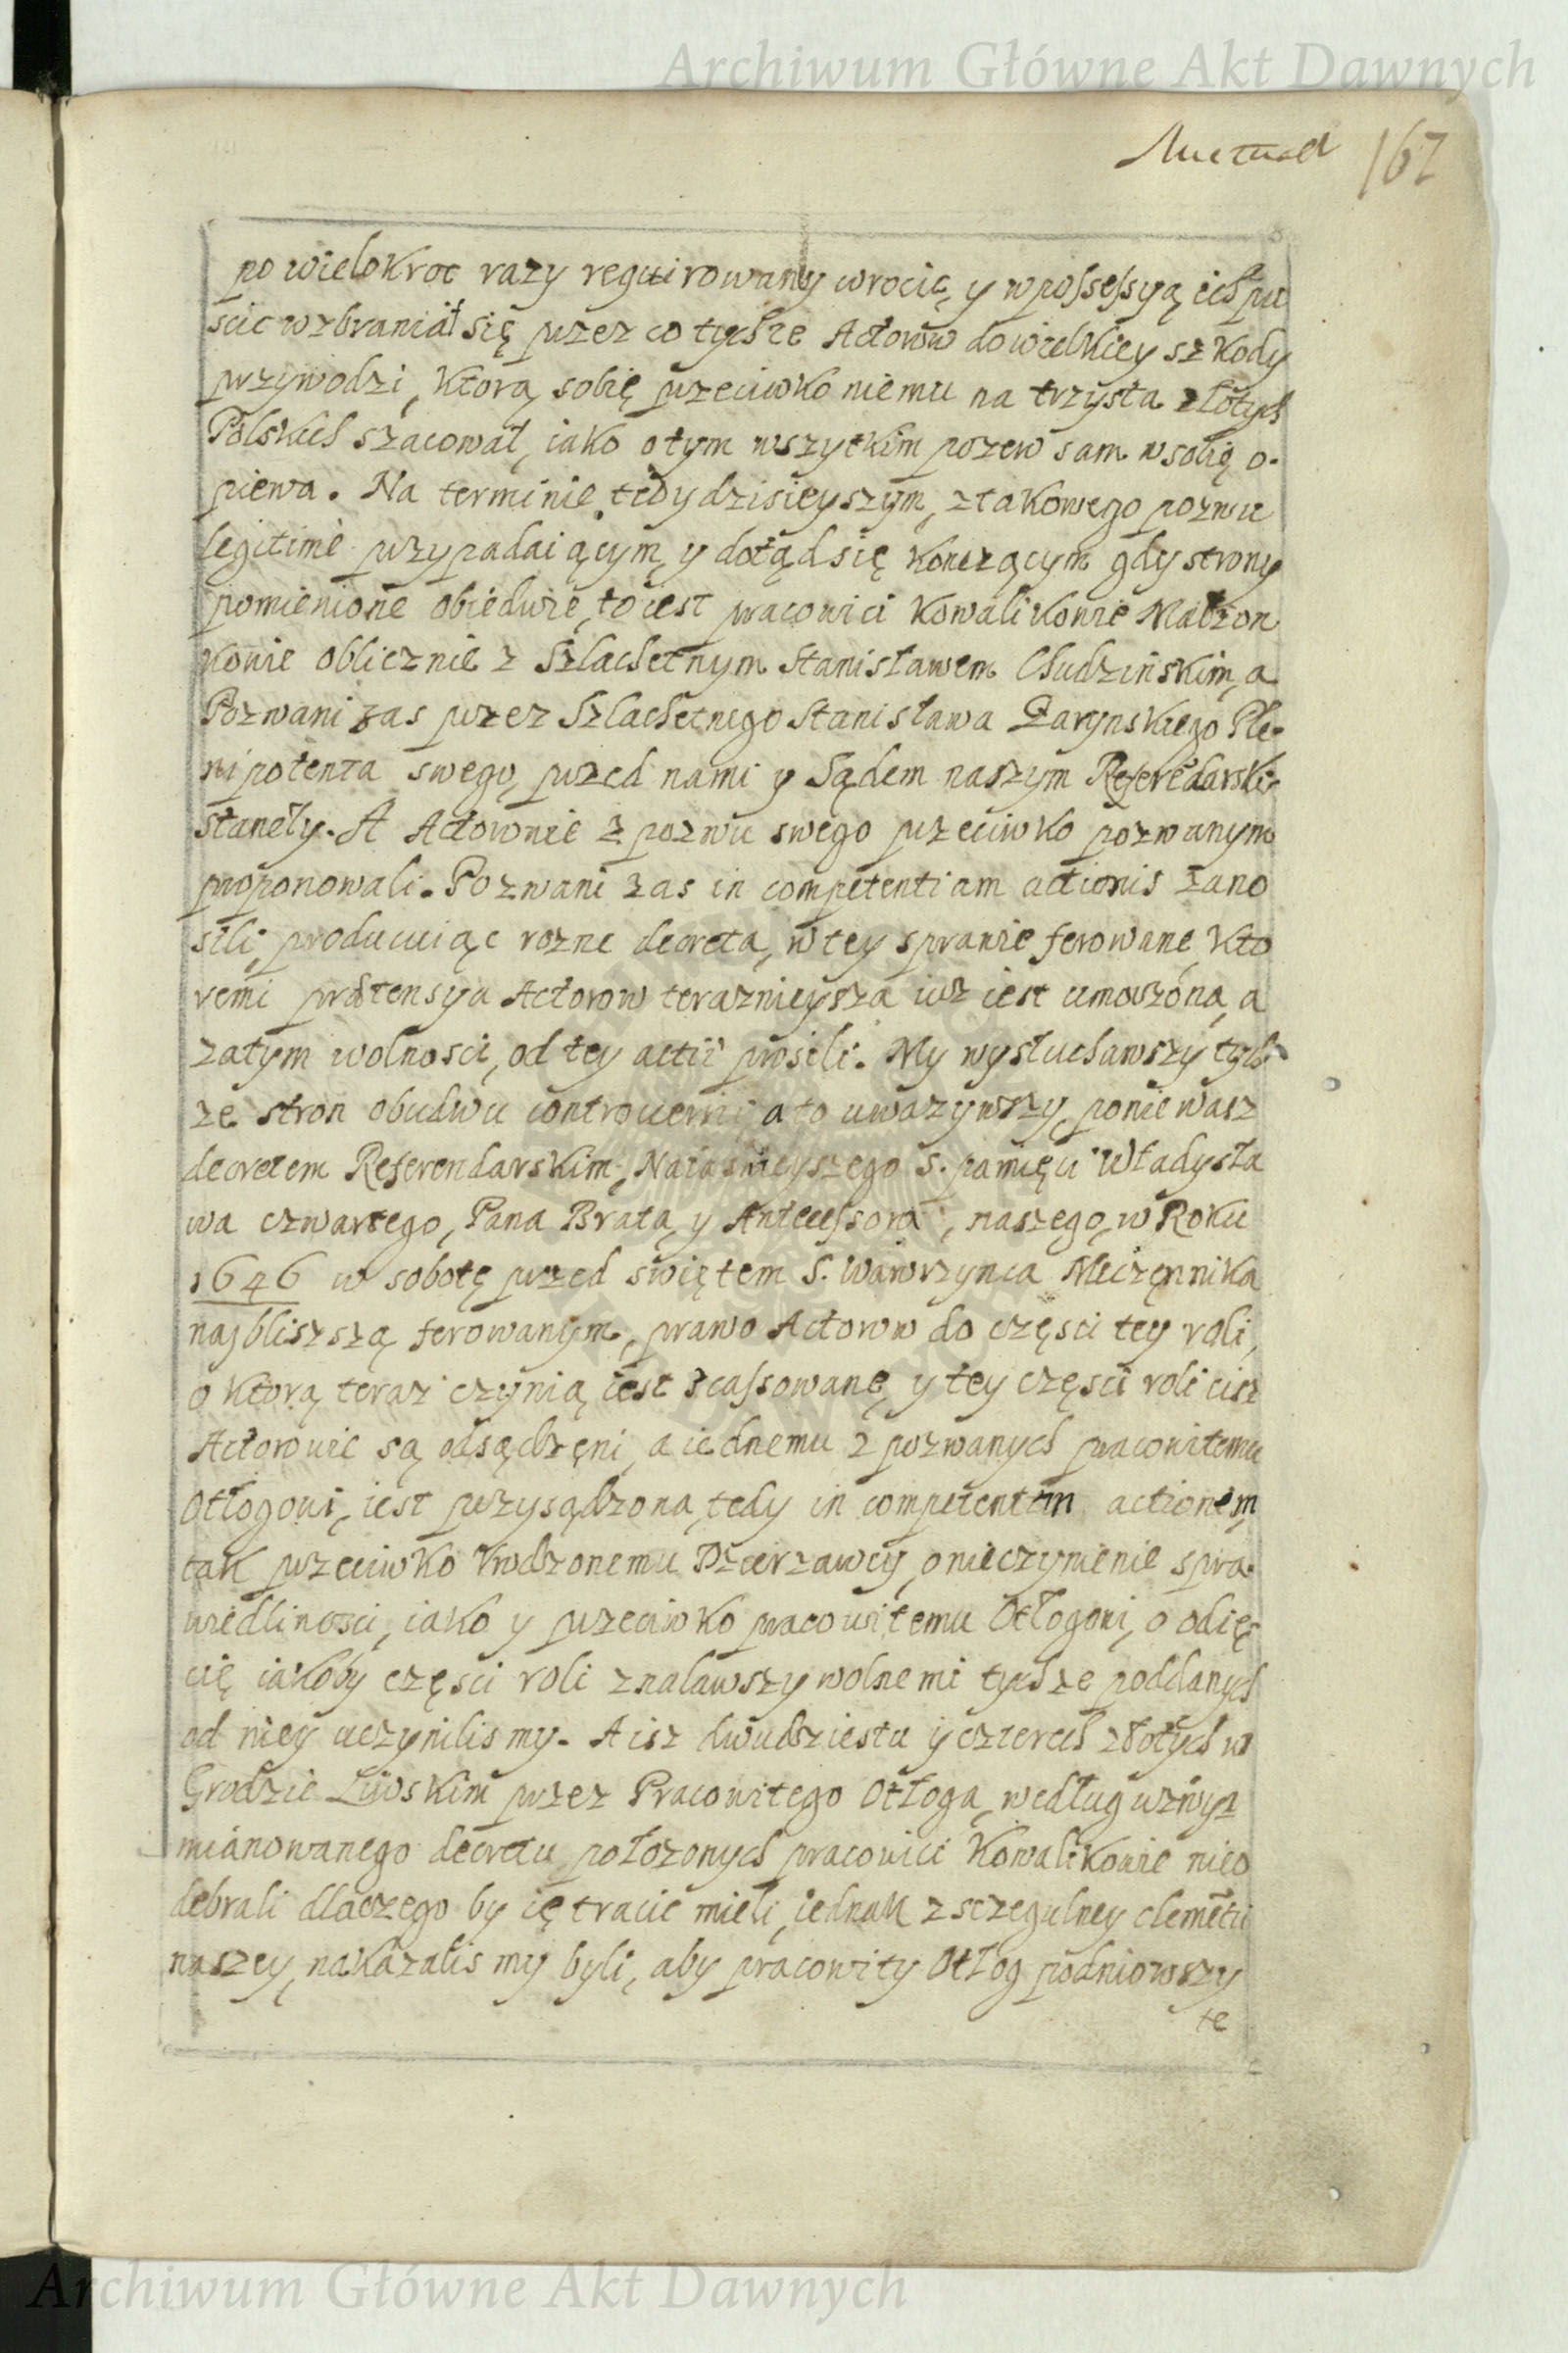 Archiwum Główne Akt Dawnych
167
po wielokroc razy requirowany wrocic, y w possessyą ich pu
scic wzbraniał się przez co tychze Actorow do wielkiey szkody
przywodzi, ktorą sobię przeciwko niemu na trzysta złotych
Polskich szacował, iako o tym wszytkim pozew sam w sobię o-
piewa. Na terminie tedy dzisieyszym, z takowego pozwu
legitime przypadaiącym, y dotąd się konczącym gdy strony
pomienione obiedwie, to iest pracowici Kowalikowie Małzon
kowie oblicznie z Szlachetnym Stanisławem Chudzinskim, a
Pozwani zas przez Szlachetnego Stanisława Zarynskiego Ple-
nipotenta swego, przed nami y Sądem naszym Referēdarski-
stanęły. A Actorowie z pozwu swego przeciwko pozwanym
proponowali. Pozwani zas in competentiam actionis zano
sili, producuiąc rozne decreta, w tey sprawie ferowane, kto
remi prætensya Actorow teraznieysza iuz iest umorzona, a
zatym wolnosci, od tey actii prosili. My wysłuchawszy tych
ze stron obudwu controuersii, a to uwazywszy, poniewasz
decretem Referendarskim, Naiasnieyszego s. pamięci Władysła
wa czwartego, Pana Brata, y Antecessora, naszego, w Roku
1646 w sobotę przed swiętem S. Wawrzynca Męczennika
najbliszszą ferowanym, prawo Actorow do częsci tey roli,
o ktorą teraz czynią, iest scassowane, y tey częsci roli cisz
Actorowie są odsądzeni, a iednemu z pozwanych pracowitemu
Otłogowi, iest przysądzona, tedy in competentem actionem
tak przeciwko Urodzonemu Dzierzawcy, o nieczynienie spra-
wiedliwosci, iako y przeciwko pracowitemu Otłogowi, o odię-
cię iakoby częsci roli znalawszy wolnemi tychze poddanych
od niey uczynilismy. A isz dwudziestu y czterech złotych w
Grodzie Liwskim przez Pracowitego Otłoga, według wzwysz
mianowanego decretu połozonych pracowici Kowalikowie nieo
debrali dlaczego by ię tracic mieli, iednak z sczegulney clemētii
naszey, nakazalismy byli, aby pracowity Otłog podniowszy
te
Archiwum Główne Akt Dawnych